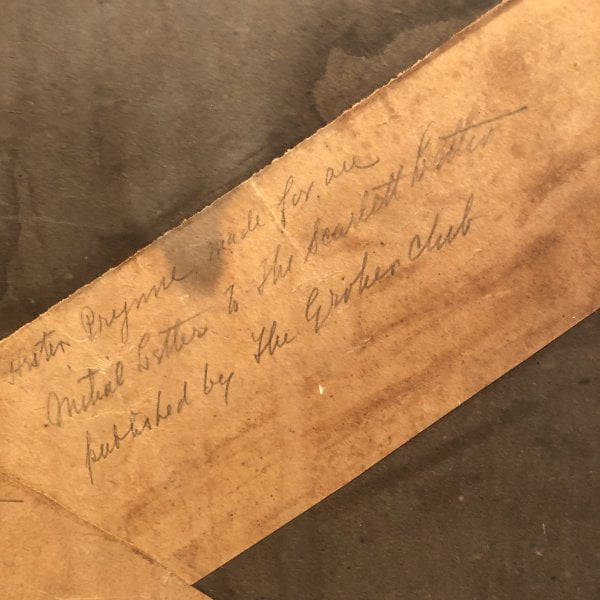 Hester Prynne, made for an
Initial Letter to The Scarlett Letter
published by The Grolier Club